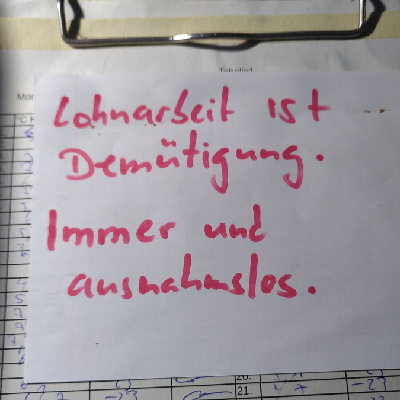 Lohnarbeit ist
Demütigung.
Immer und
ausnahmslos.
21